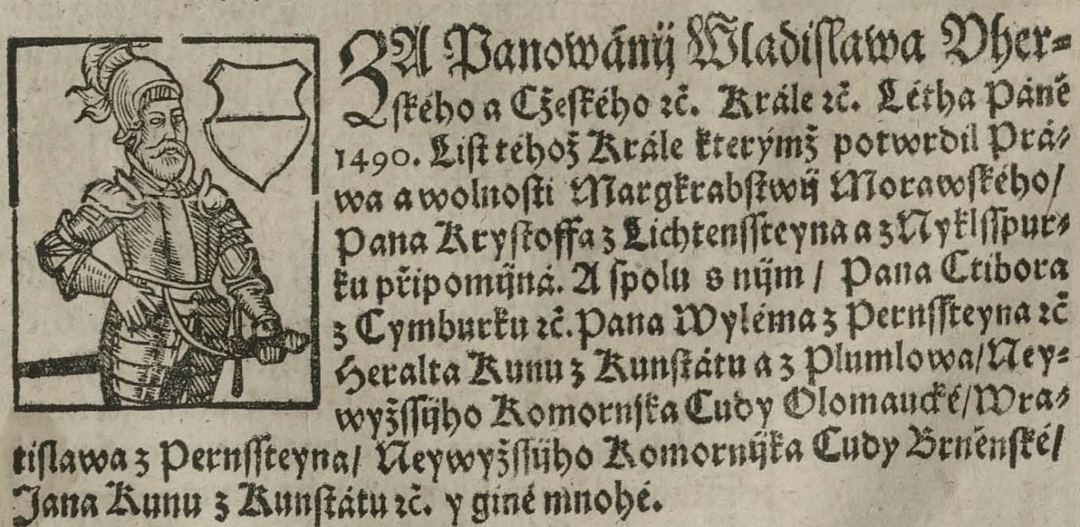 ZA Panowánij Wladislawa Vher-
ského a Cžeského ꝛč. Krále ꝛč. Létha Páně
1490. List téhož Krále kterýmž potwrdil Prá-
wa a wolnosti Margkrabstwij Morawského/
Pana Krystoffa z Lichtenssteyna a z Nyklsspur-
ku připomijná. A spolu s nijm / Pana Ctibora
z Cymburku ꝛč. Pana Wyléma z Pernssteyna ꝛč
Heralta Kunu z Kunstátu a z Plumlowa/ Ney-
wyžssijho Komornjka Cudy Olomaucké/ Wra-
tislawa z Pernssteyna/ Neywyžssijho Komornijka Cudy Brněnské/
Jana Kunu z Kunstátu ꝛč. y giné mnohé.